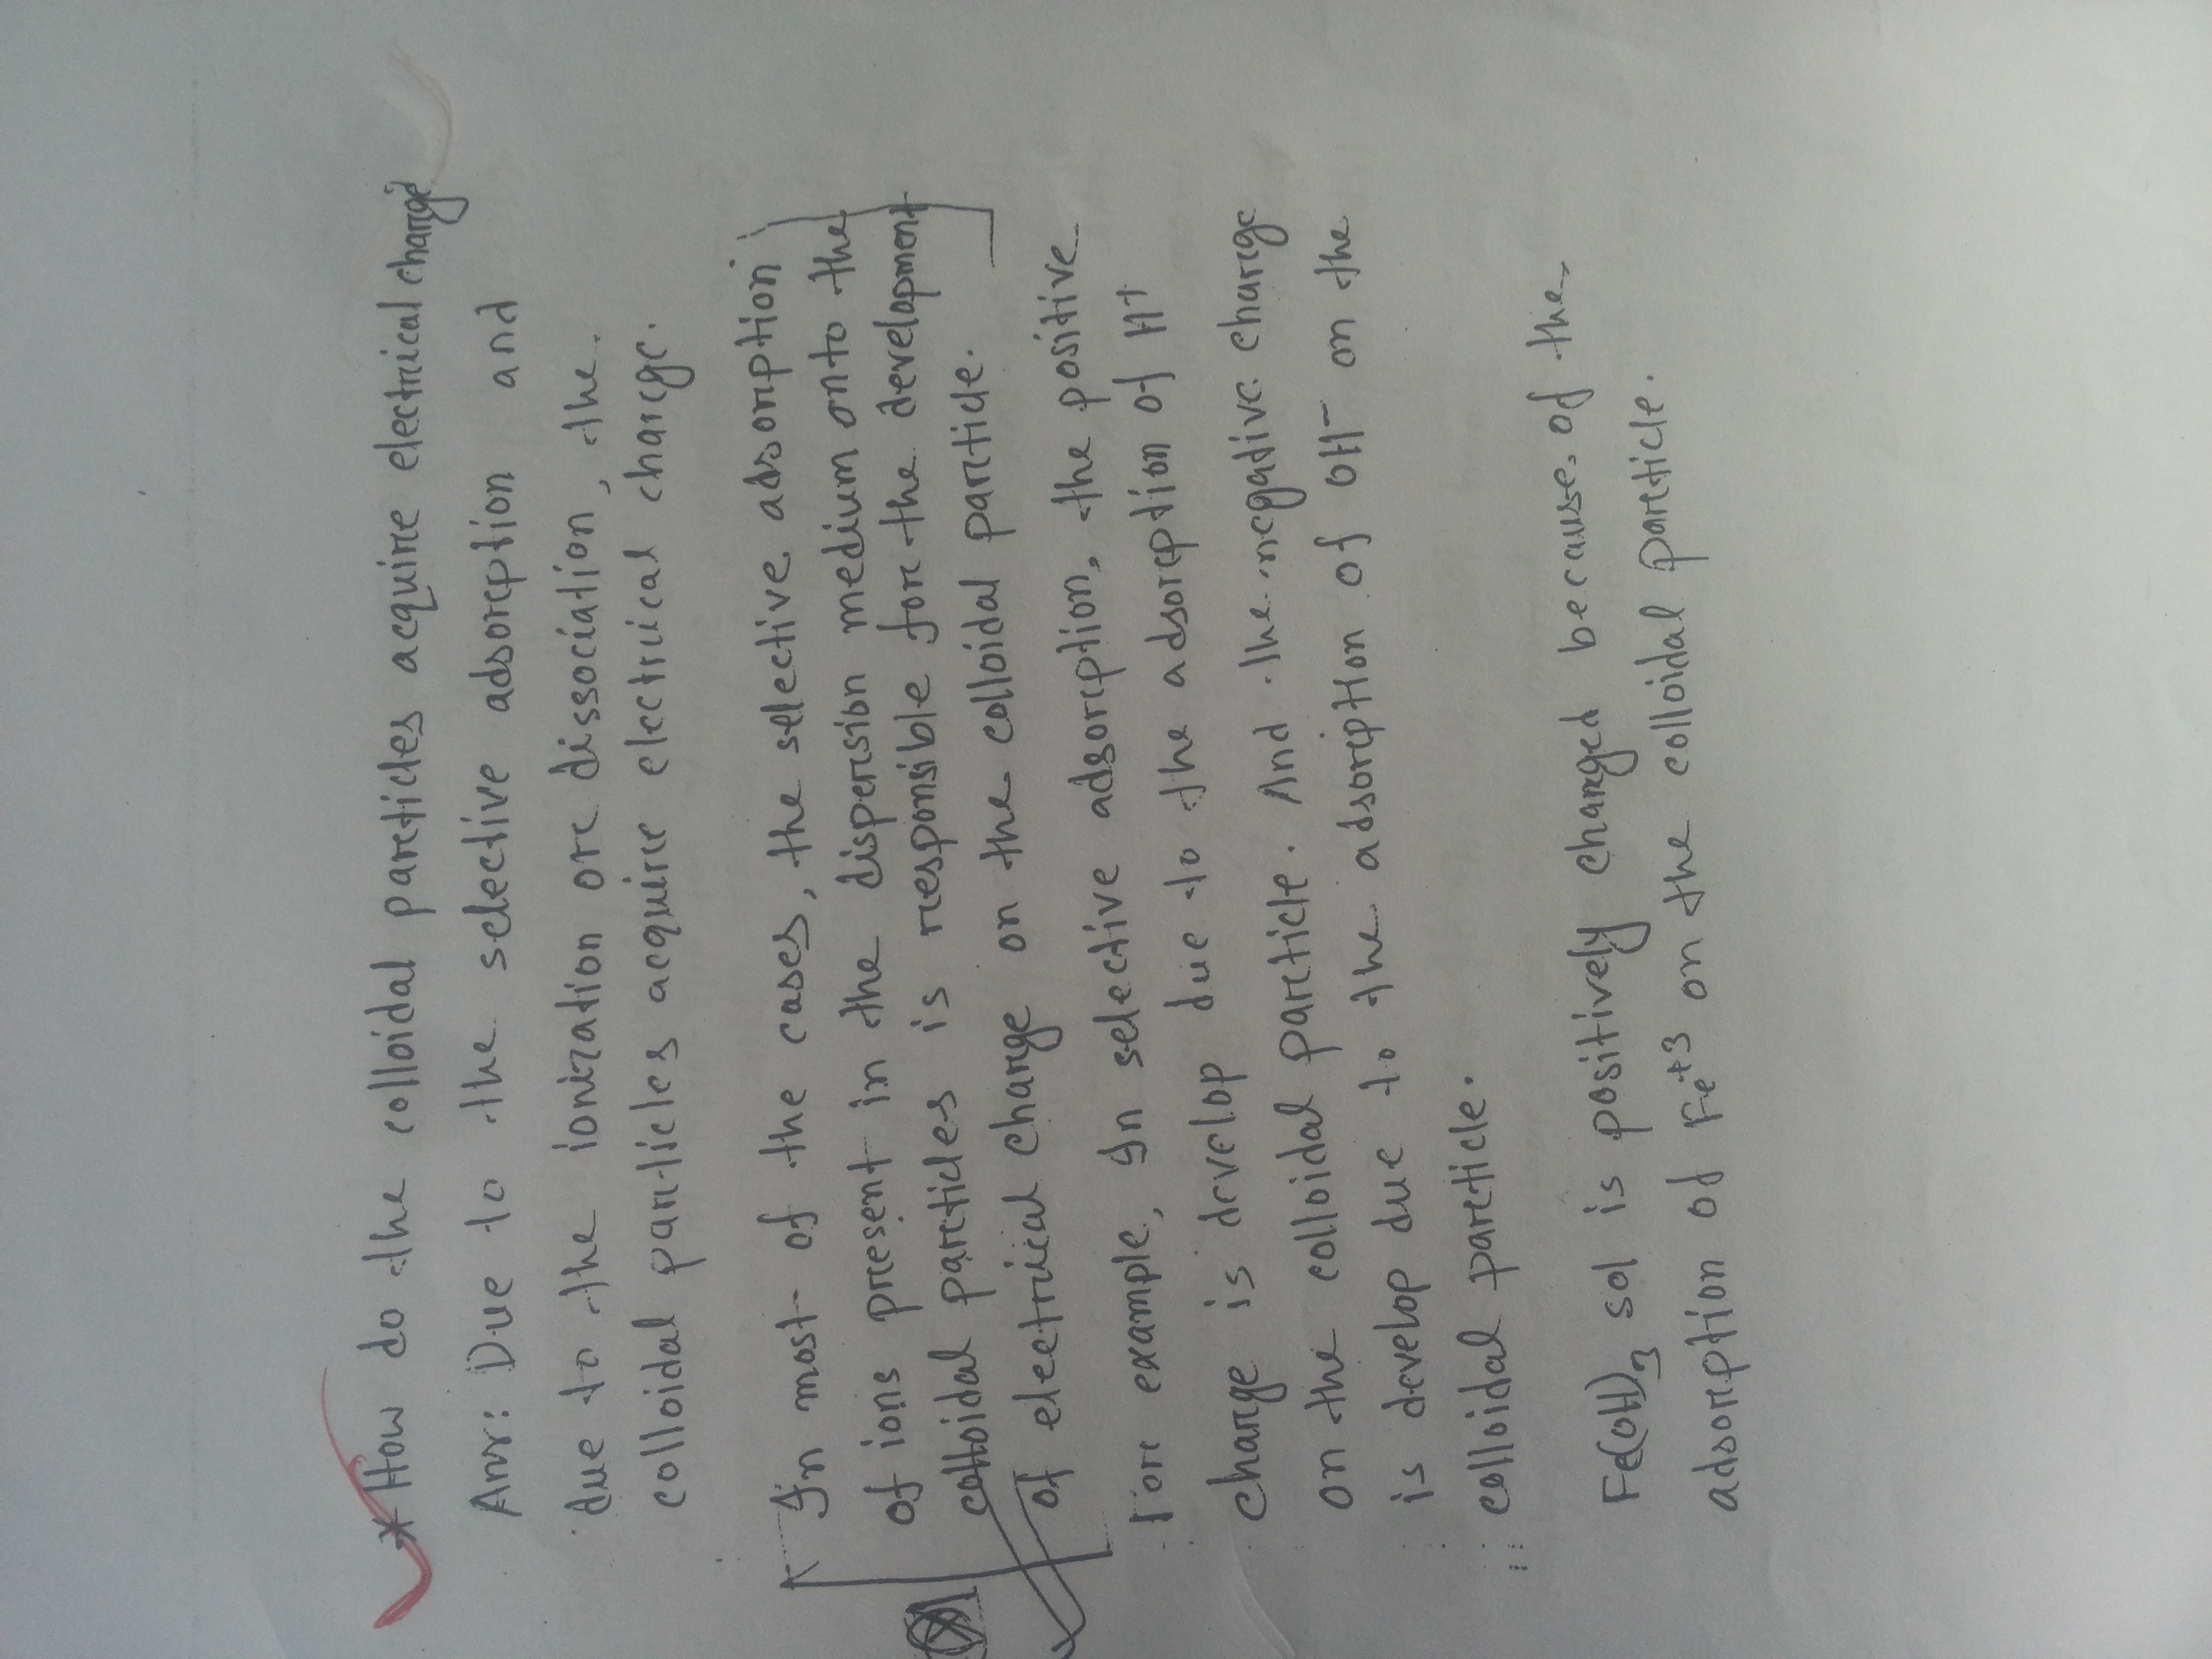 * How do the colloidal particles acquire electrical charge
Ans: Due to the selective adsorption and
due to the ionization or dissociation, the
colloidal particles acquire electrical charge.
In most of the cases, the selective adsorption
of ions present in the dispersion medium onto the
colloidal particles is responsible for the development
of electrical charge on the colloidal particle.
For example, In selective adsorption, the positive
charge is develop due to the adsorption of H+
on the colloidal particle. And the negative charge
is develop due to the adsorption of OH- on the
colloidal particle.
Fe(OH)3 sol is positively charged because of the
adsorption of Fe+3 on the colloidal particle.